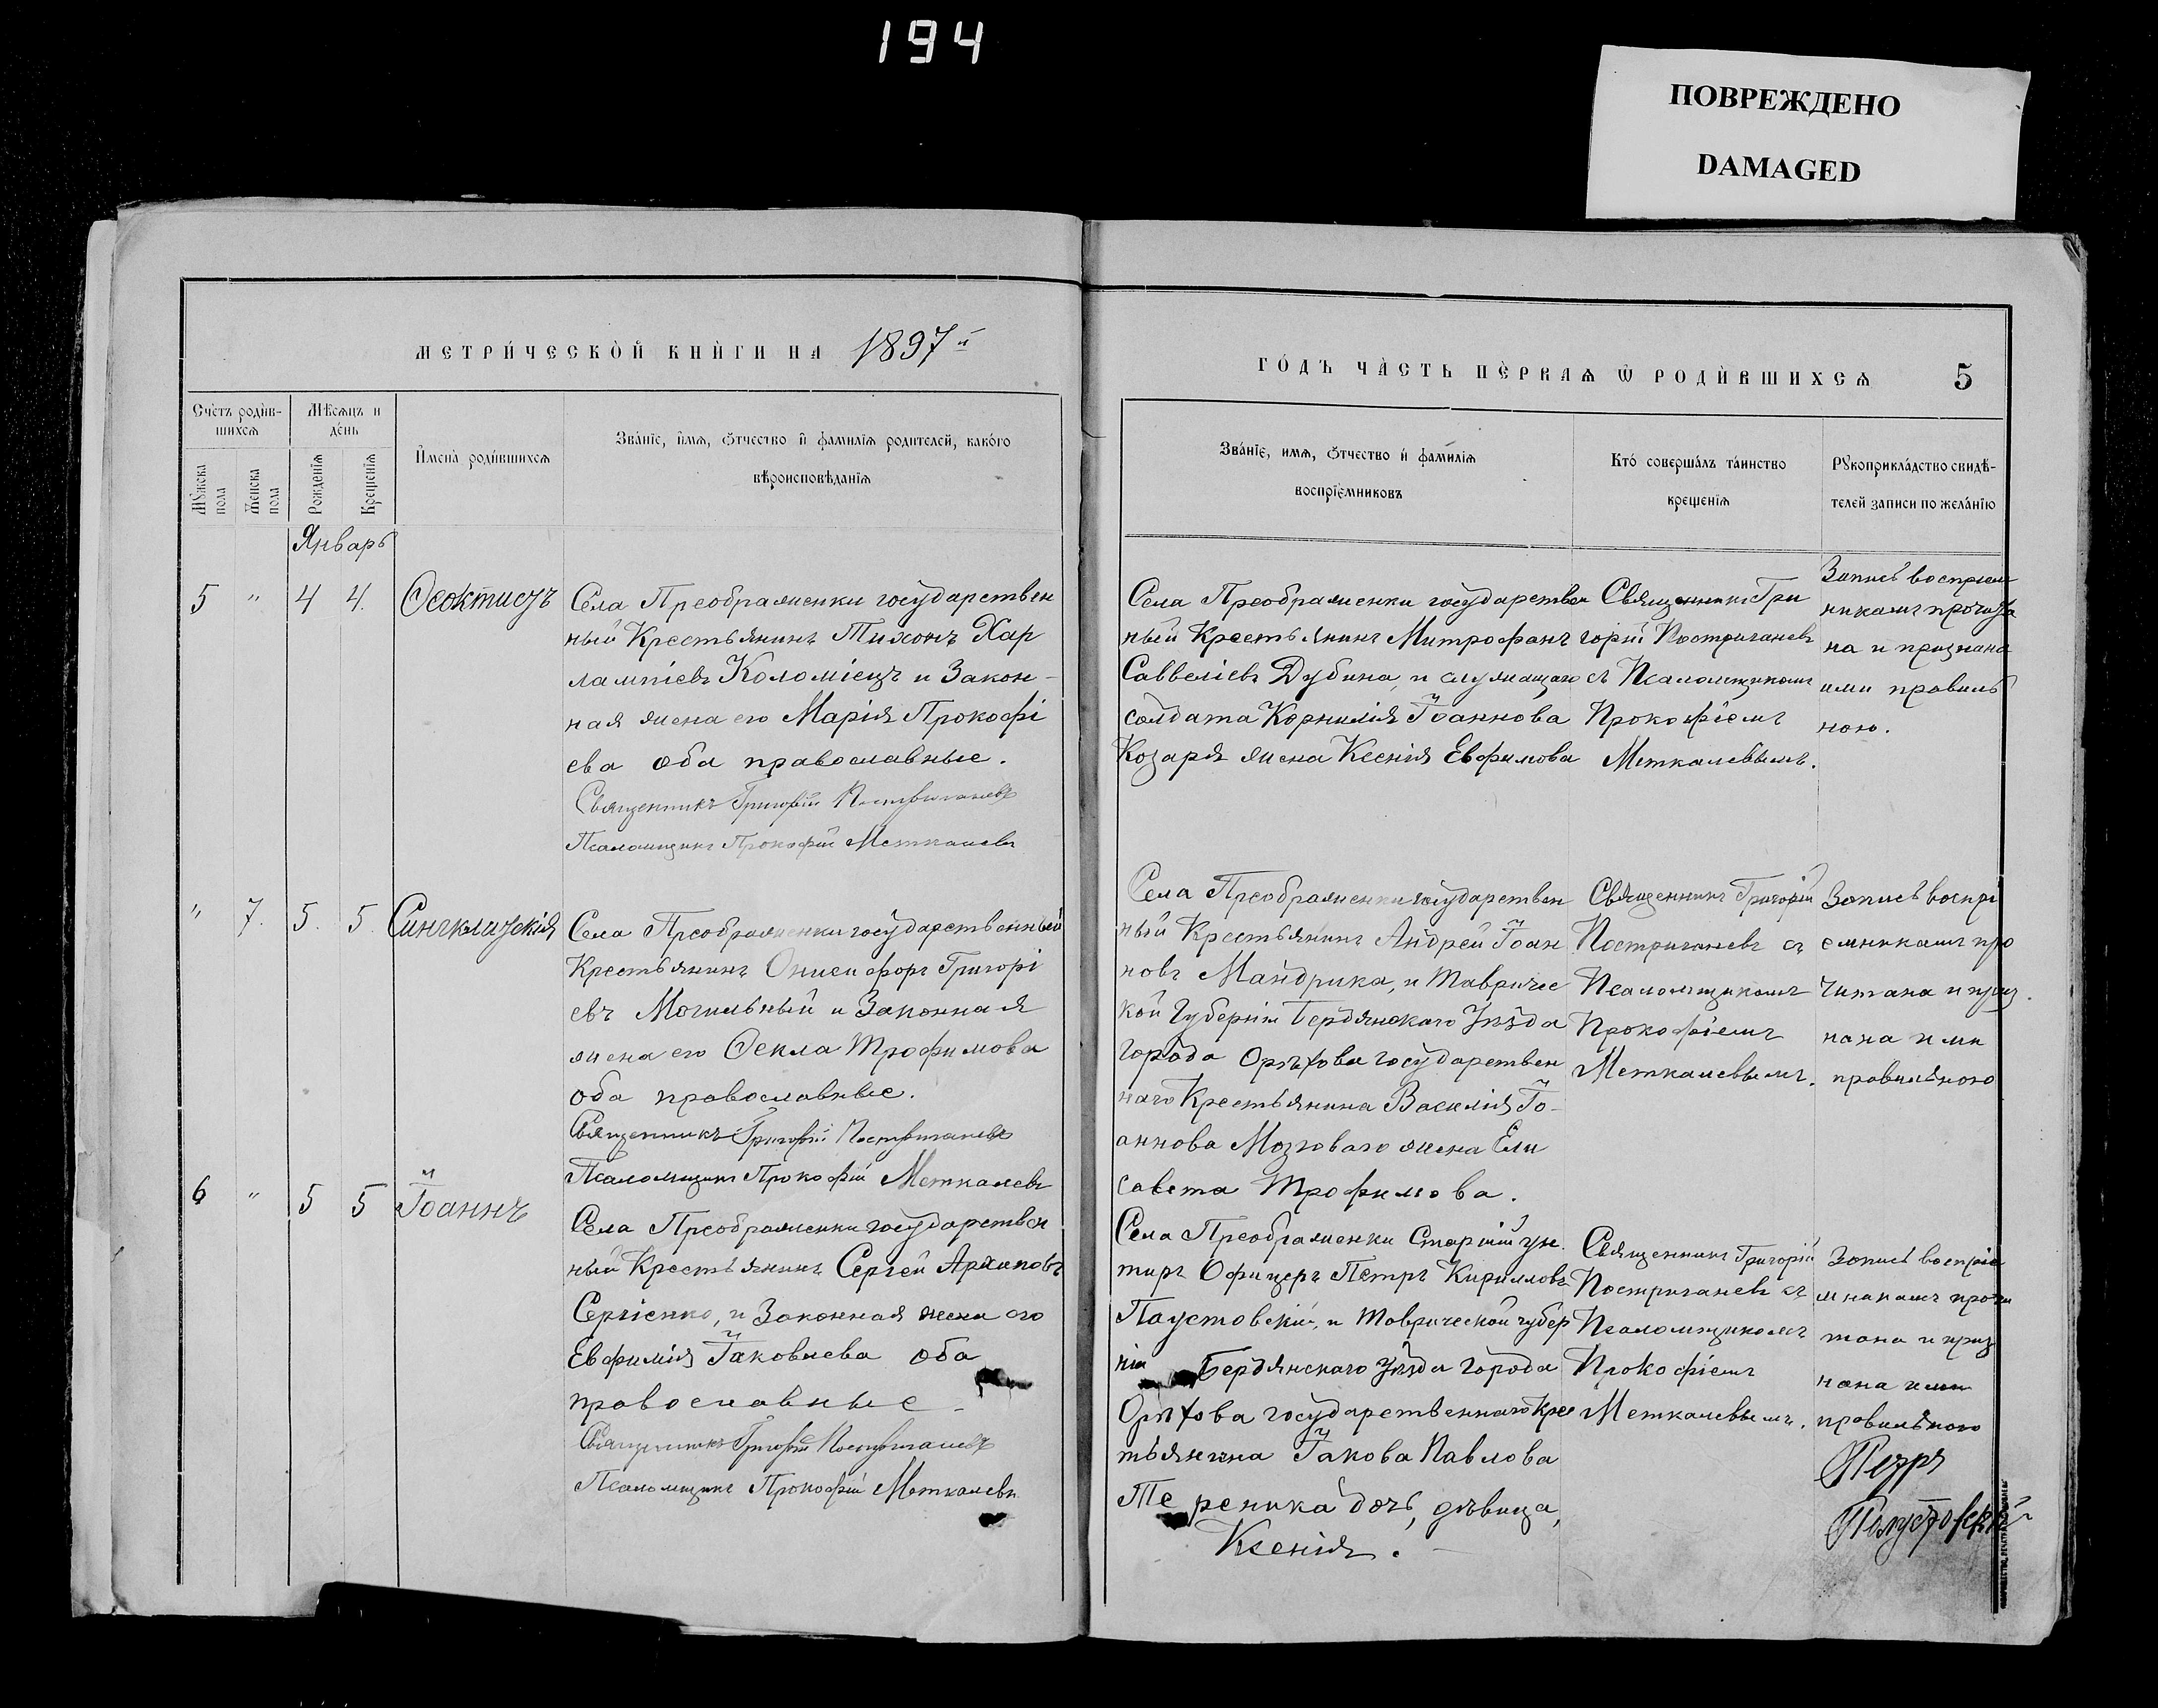 194
ПОВРЕЖДЕНО
DAMAGED
МЕТРИ́ЧЕСКОЙ КНИ́ГИ НА 1897й
ГО́ДЪ ЧА́СТЬ ПЕ́РВАѦ Ѡ҆ РОДИ́ВШИХСѦ 5
Сче́тъ роди́в-
шихсѧ
Мѣ́сѧцъ и
де́нь
Мꙋ́жеска
пола
Же́нска
пола
Рожденїѧ
Крещенїѧ
И҆мена̀ роди́вшихсѧ
Зва́нїе, и҆́мѧ, ѻ҆́тчество и҆ фамилїѧ родителей, како́го
вѣроисповѣ́данїѧ
Зва́нїе, имѧ, ѻ҆́тчество и҆ фамилїѧ
воспрїе́мниковъ
Кто́ соверша́лъ та́инство
крещенїѧ
Рꙋкоприкла́дство свидѣ́-
телей записи по жела́нїю
Январь
5 " 4 4. Ѳеоктистъ
Села Преображенки государствен
ный Крестьянинъ Тихонъ Хар
лампіевъ Коломіецъ и Закон-
ная жена его Марія Прокофі
ева оба православные.
Священникъ Григорій Постриганевъ
Псаломщикъ Прокофій Меткалевъ
Села Преображенки государствен
ный Крестьянинъ Митрофанъ
Саввеліевъ Дубина, и служащаго
солдата Корнилія Іоаннова
Козаря жена Ксенія Евфимова
Священникъ Гри
горій Постриганевъ
съ Псаломщикомъ
Прокофіемъ
Меткалевымъ.
Запись воспріем
никамъ прочита
на и признана
ими правиль
ною.
" 7. 5. 5. Сингклитикія
Села Преображенки государственный
Крестьянинъ Онисифоръ Григорі
евъ Могильный и Законная
жена его Ѳекла Трофимова
оба православные.
Священникъ Григорій Постриганевъ
Псаломщикъ Прокофій Меткалевъ
Села Преображенки государствен
ный Крестьянинъ Андрей Іоан
новъ Мандрика, и Тавричес
кой Губерніи Бердянскаго Уѣзда
города Орѣхова государствен
наго Крестьянина Василія Іо-
аннова Мозговаго жена Ели
савета Трофимова.
Священникъ Григорій
Постриганевъ съ
Псаломщикомъ
Прокофіемъ
Меткалевымъ.
Запись воспрі
емникамъ про
читана и приз
нана ими
правильною
6 " 5 5 Іоаннъ
Села Преображенки государствен
ный Крестьянинъ Сергей Архиповъ
Сергіенко, и Законная жена его
Евфимія Іаковлева оба
православные
Священникъ Григорій Постриганевъ
Псаломщикъ Прокофій Меткалевъ
Села Преображенки Старшій ун.
теръ Офицеръ Петръ Кирилловъ
Паустовскій, и Таврической губер
ніи Бердянскаго Уѣзда города
Орѣхова государственнаго Крес
тьянина Іакова Павлова
Тереника дочь, дѣвица,
Ксенія.
Священникъ Григорій
Постриганевъ съ
Псаломщикомъ
Прокофіемъ
Меткалевымъ.
Запись воспріе
мникамъ прочи
тана и приз
нана ими
правильною
Петръ
Паустовскій